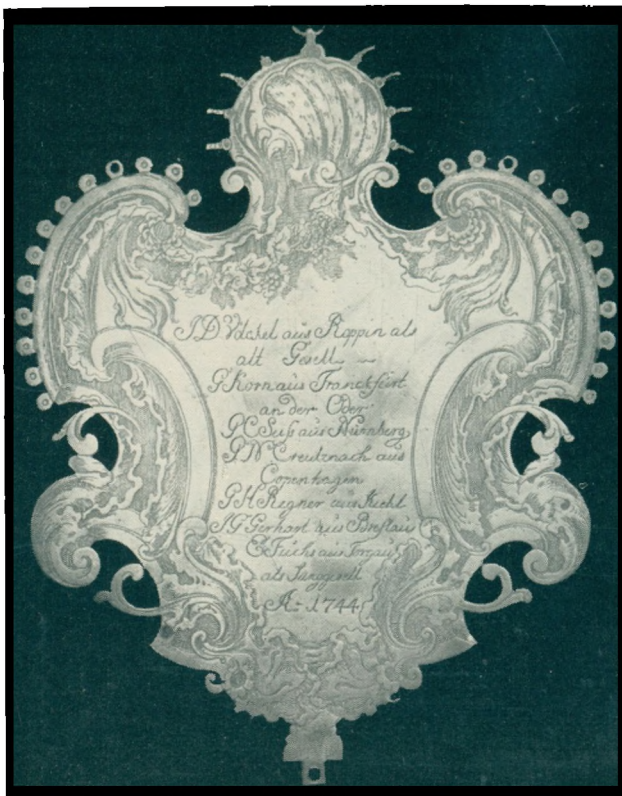 J D Völckel aus Roppin als
alt Gesell
G Korn aus Franckfürt
an der Oder
P C Seuſs aus Nürnberg
P N Creutznach aus
Copenhagen
P H Regner aus
N G Gerhart aus Breslau
E Füchs aus Torgau
als Junggesell
A: 1744